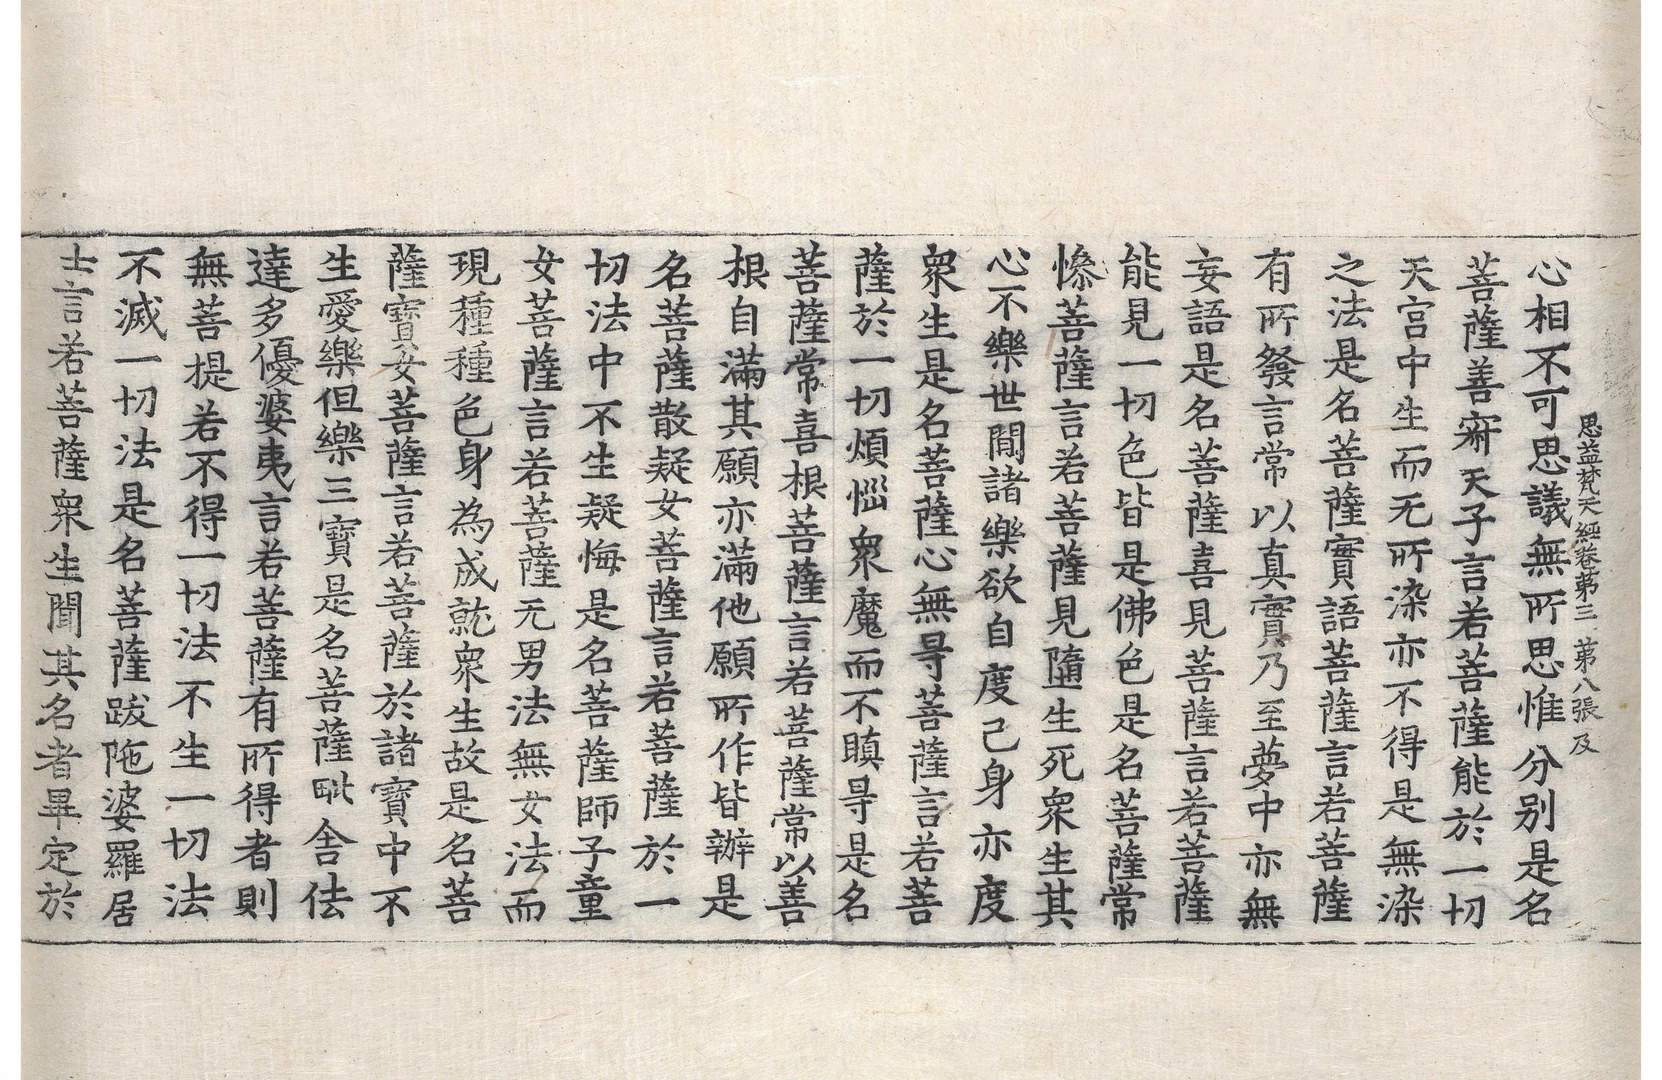 思益梵天經卷第三 第八張 及
心相不可思議無所思惟分别是名
菩薩善寂天子言若菩薩能於一切
天宮中生而无所染亦不得是無染
之法是名菩薩實語菩薩言若菩薩
有所發言常以真實乃至夢中亦無
妄語是名菩薩喜見菩薩言若菩薩
能見一切色皆是佛色是名菩薩常
慘菩薩言若菩薩見墮生死衆生其
心不樂世間諸樂欲自度己身亦度
衆生是名菩薩心無㝵菩薩言若菩
薩於一切煩惱衆魔而不瞋㝵是名
菩薩常喜根菩薩言若菩薩常以善
根自滿其願亦滿他願所作皆辦是
名菩薩散疑女菩薩言若菩薩於一
切法中不生疑悔是名菩薩師子童
女菩薩言若菩薩无男法無女法而
現種種色身為成就衆生故是名菩
薩寶女菩薩言若菩薩於諸寶中不
生愛樂但樂三寶是名菩薩毗舍佉
達多優婆夷言若菩薩有所得者則
無菩提若不得一切法不生一切法
不滅一切法是名菩薩跋陁婆羅居
士言若菩薩衆生聞其名者畢定於